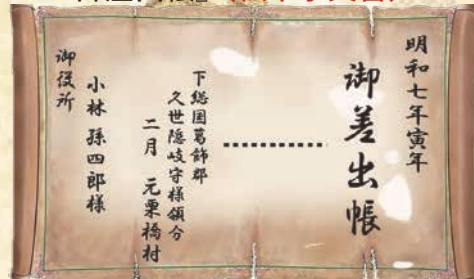 明和七年寅年
御差出帳
下総国葛飾郡
久世隠岐守様領分
二月 元栗橋村
小林 孫四郎様
御役所